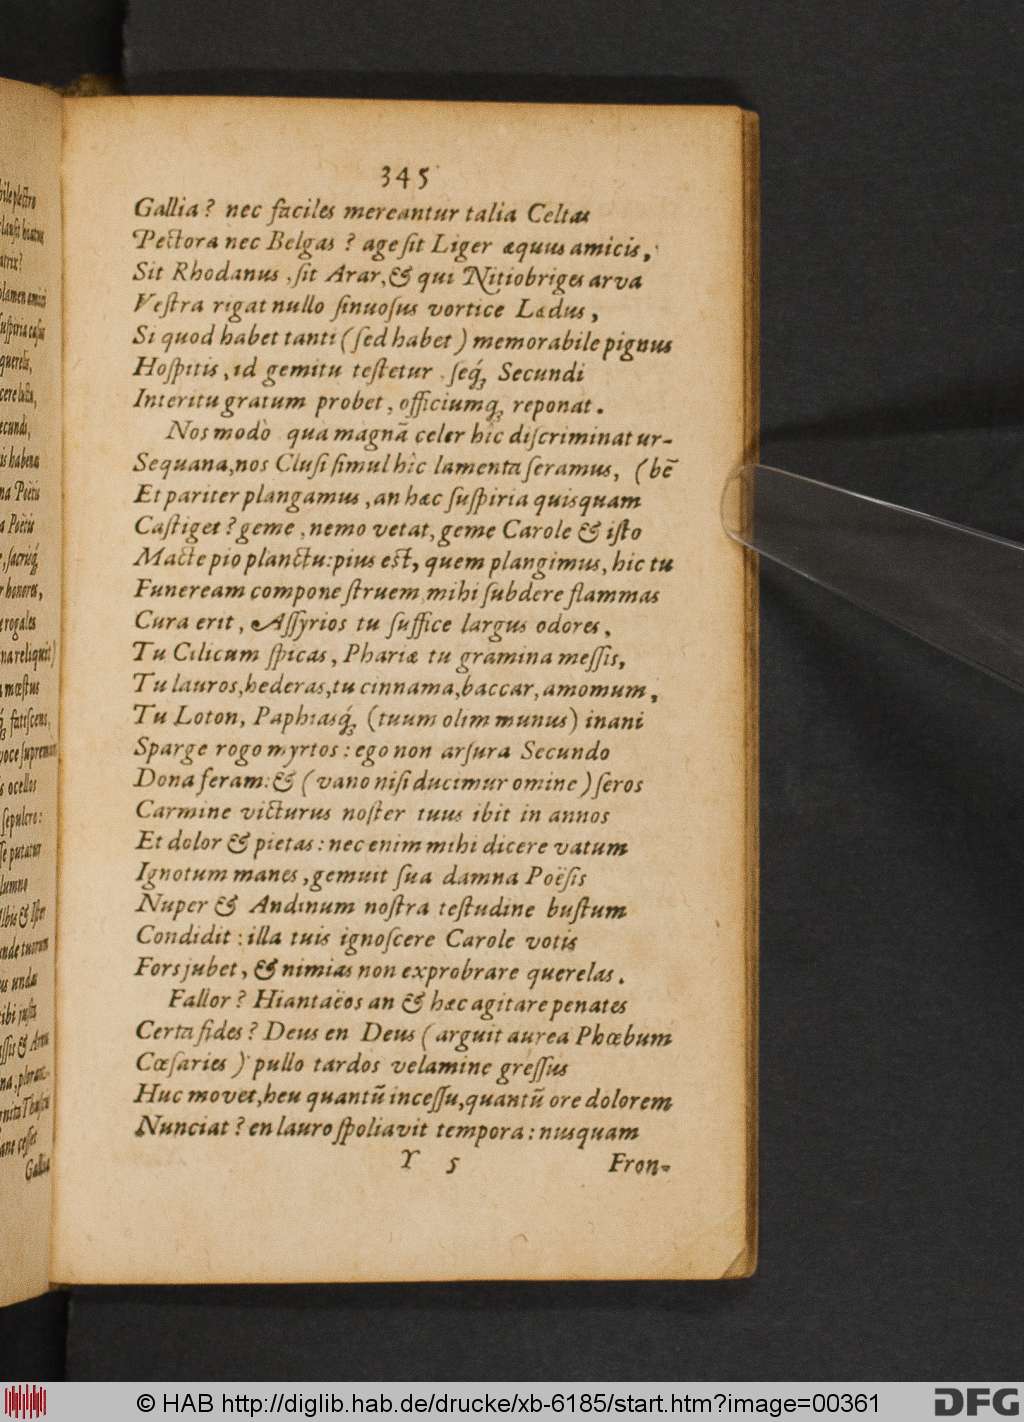 345
Gallia? nec faciles mereantur talia Celtas
Pectora nec Belgas? age sit Liger æquus amicis,
Sit Rhodanus, sit Arar, & qui Nitiobriges arva
Veſtra rigat nullo ſinuoſus vortice Lædus,
Si quod habet tanti (ſed habet) memorabile pignus
Hoſpitis, id gemitu teſtetur, ſeq́ꝫ Secundi
Interitu gratum probet, officiumq́ꝫ reponat.
Nos modò qua magnā celer hîc diſcriminat ur-
Sequana, nos Cluſi ſimul hîc lamenta ſeramus, (bē
Et pariter plangamus, an hæc ſuſpiria quisquam
Caſtiget? geme, nemo vetat, geme Carole & iſto
Macte pio planctu: pius eſt, quem plangimus, hic tu
Funeream compone ſtruem mihi ſubdere flammas
Cura erit, Aſſyrios tu ſuffice largus odores,
Tu Cilicum ſpicas, Phariæ tu gramina meſſis,
Tu lauros, hederas, tu cinnama, baccar, amomum,
Tu Loton, Paphiasq́ꝫ (tuum olim munus) inani
Sparge rogo myrtos: ego non arſura Secundo
Dona feram: & (vano niſi ducimur omine) ſeros
Carmine victurus noſter tuus ibit in annos
Et dolor & pietas: nec enim mihi dicere vatum
Ignotum manes, gemuit ſua damna Poëſis
Nuper & Andinum noſtra teſtudine buſtum
Condidit: illa tuis ignoſcere Carole votis
Fors jubet, & nimias non exprobrare querelas.
Fallor? Hiantæos an & hæc agitare penates
Certa fides? Deus en Deus (arguit aurea Phœbum
Cæſaries) pullo tardos velamine greſſus
Huc movet, heu quantū inceſſu, quantū ore dolorem
Nunciat? en lauro ſpoliavit tempora: nusquam
Y 5 Fron-
© HAB http://diglib.hab.de/drucke/xb-6185/start.htm?image=00361
DFG